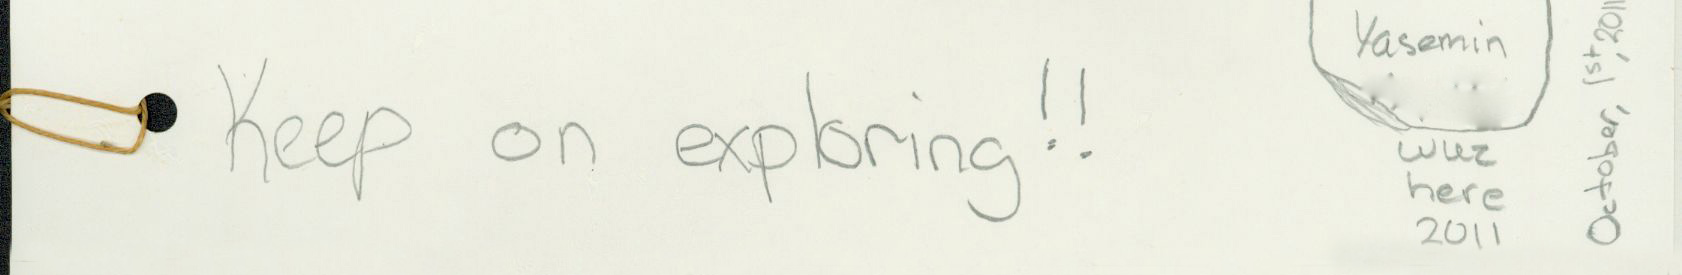 Keep on exploring!!
Yasemin
wuz
here
2011
October, 1st, 2011